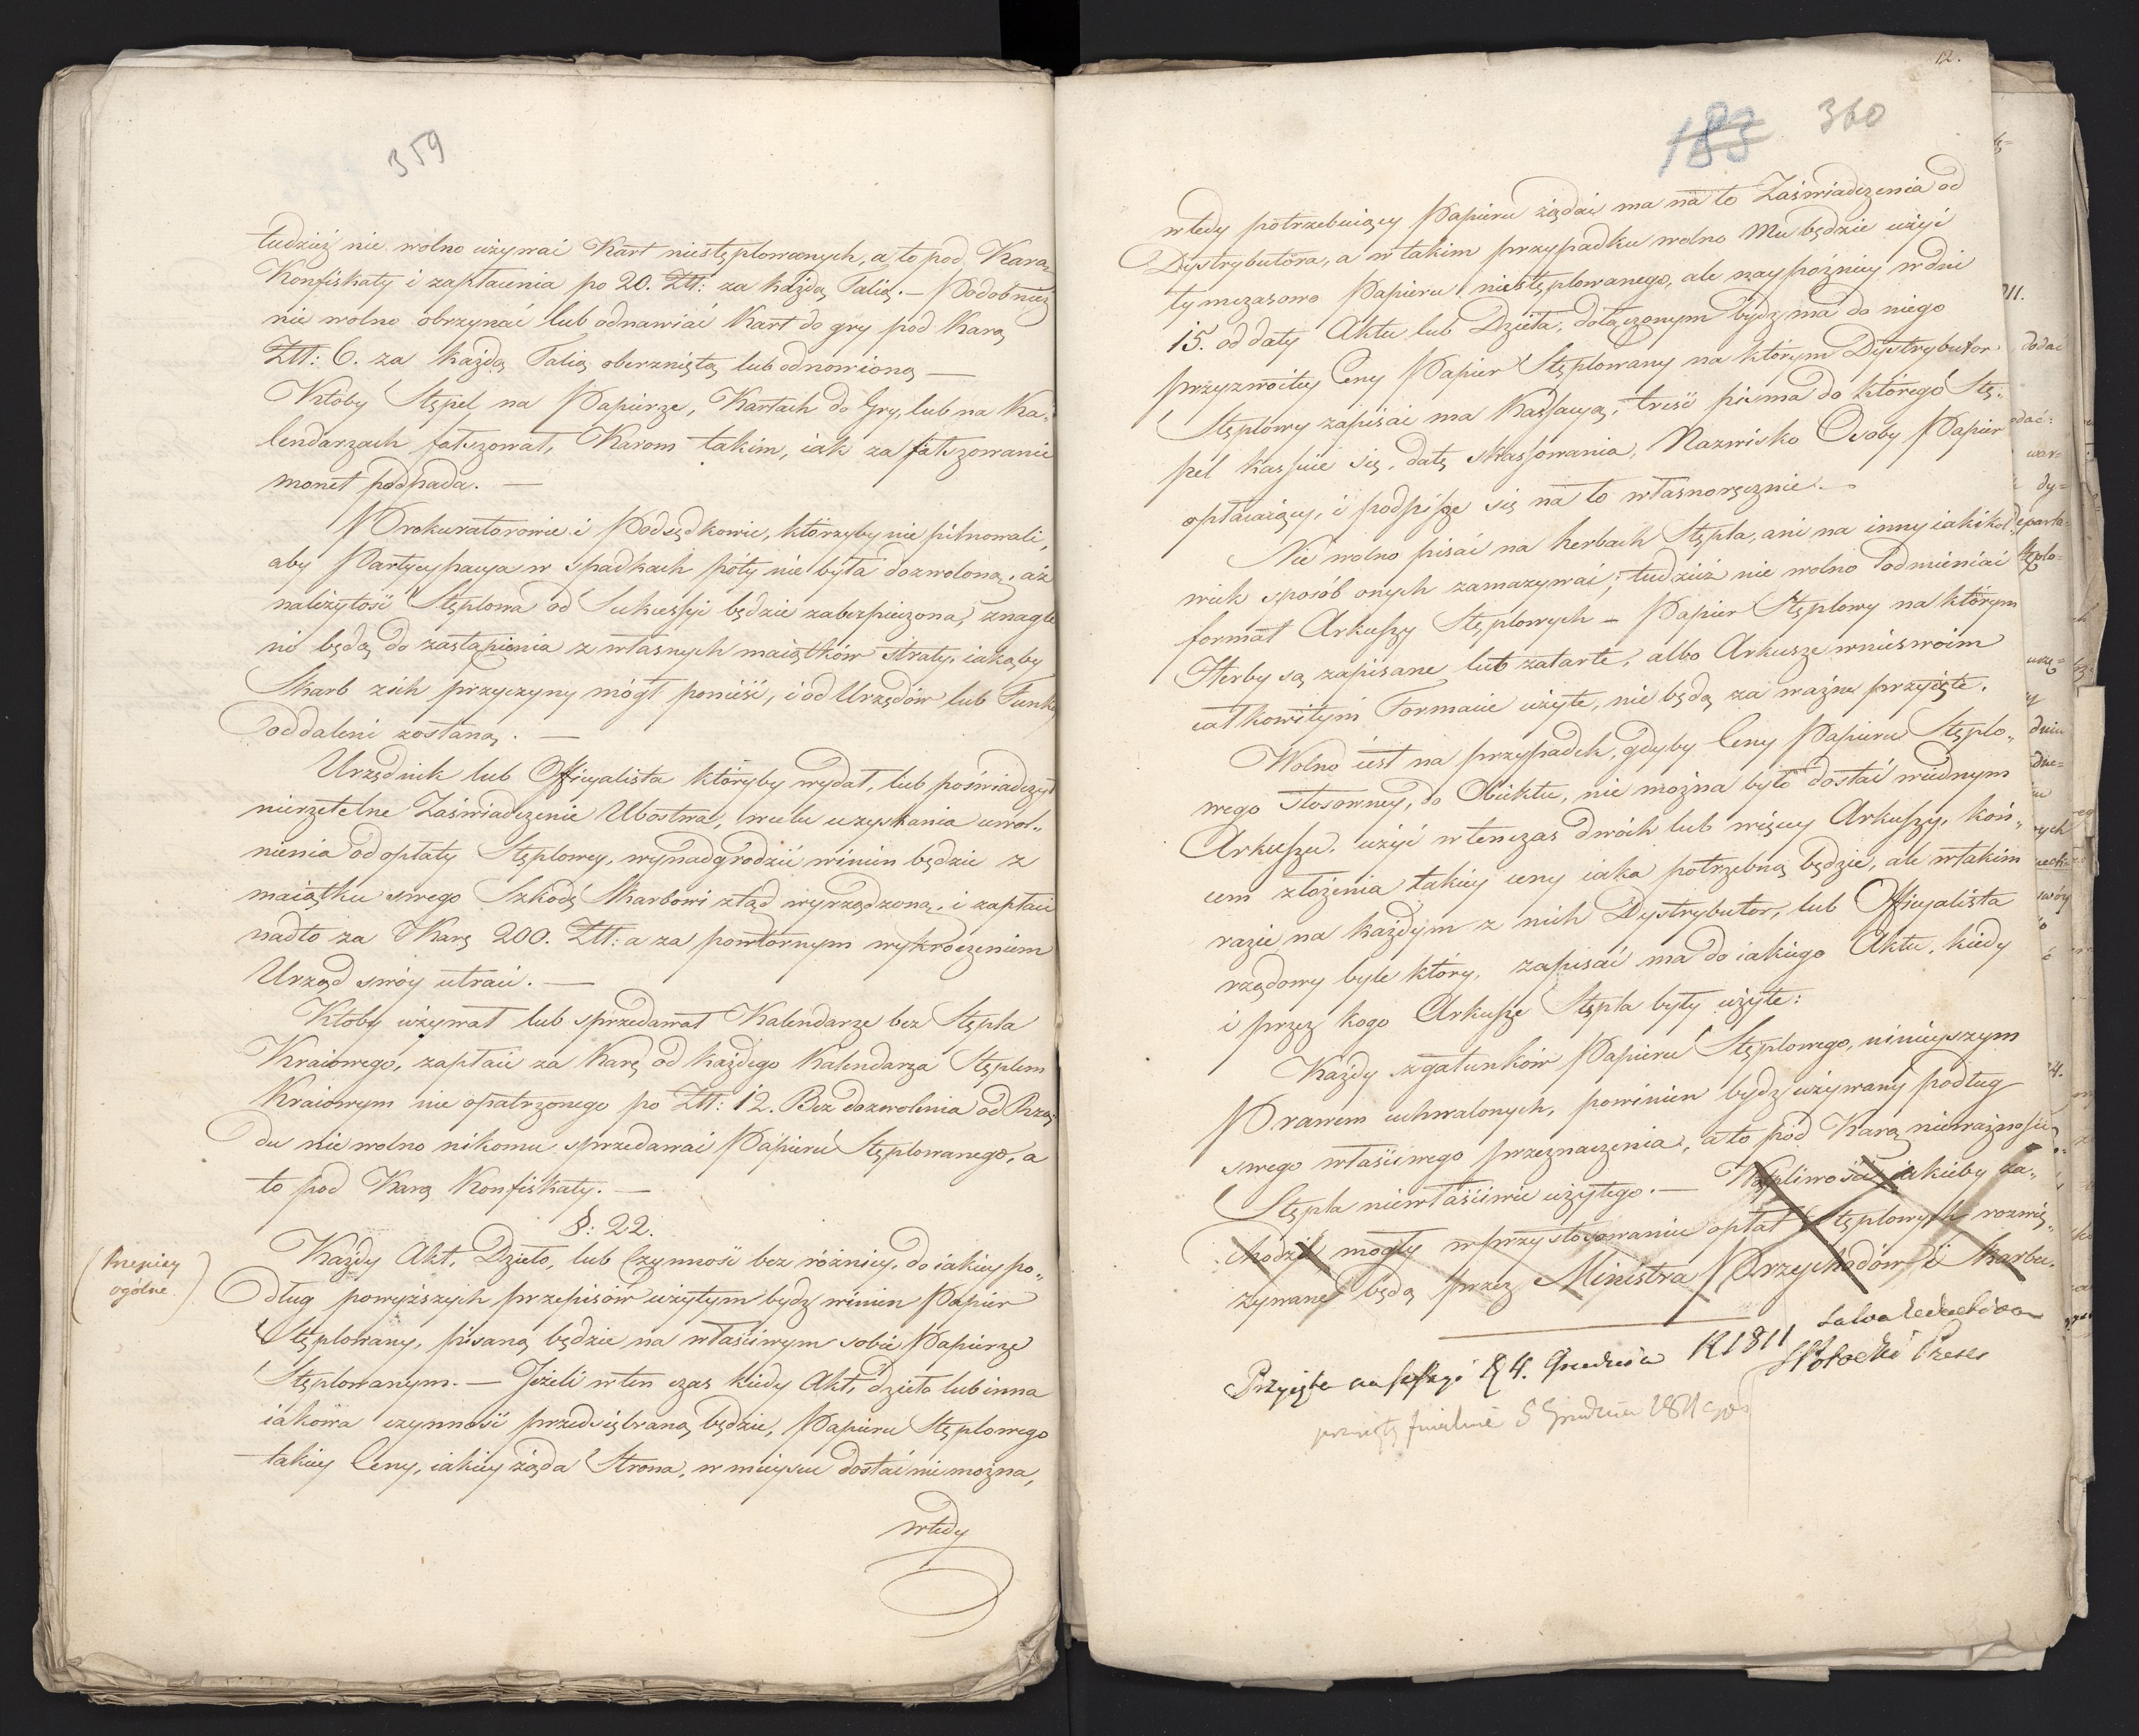 359
tudzież nie wolno używać Kart niestęplowanych, a to pod Karą
Konfiskaty i zapłacenia po 20. Złł: za każdą Talią. — Podobnież
nie wolno obrzynać lub odnawiać Kart do gry pod Karą
Złł: 6. za każdą Talią oberzniętą lub odnowioną —
Ktoby Stępel na Papierze, Kartach do Gry, lub na Ka„
lendarzach fałszował, Karom takim, iak za fałszowanie
monet podpada. —
Prokuratorowie i Podsędkowie, którzyby nie pilnowali,
aby Partycypacya w spadkach póty nie była dozwoloną, aż
należytość Stęplowa od Sukcessyi będzie zabespieczona, znagle
ni będą do zastąpienia z własnych maiątków straty, iakąby
Skarb z ich przyczyny mógł ponieść, i od Urzędów lub Funkcy
oddaleni zostaną. —
Urzędnik lub Officyalista któryby wydał, lub poświadczył
nierzetelne Zaświadczenie Ubostwa, w celu uzyskania uwol„
nienia od opłaty Stęplowey, wynadgrodzić winien będzie z
maiątku swego Szkodę Skarbowi ztąd wyrządzoną, i zapłaci
nadto za Karę 200. Złł: a za powtórnym wykroczeniem
Urząd swóy utraci. —
Ktoby używał lub sprzedawał Kalendarze bez Stępla
Kraiowego, zapłaci za Karę od każdego Kalendarza Stęplem
Kraiowym nie opatrzonego po Złł: 12. Bez dozwolenia od Rzą„
du nie wolno nikomu sprzedawać Papieru Stęplowanego, a
to pod Karą Konfiskaty. —
§: 22.
(Przepisy
ogólne.)
Każdy Akt, Dzieło, lub Czynność bez różnicy, do iakiey po„
dług powyższych przepisów użytym bydź winien Papier
Stęplowany, pisaną będzie na właściwym sobie Papierze
Stęplowanym. — Jeżeli w ten czas kiedy Akt, dzieło lub inna
iakowa czynność przedsiębraną będzie, Papieru Stęplowego
takiey Ceny, iakiey żąda Strona, w mieyscu dostać niemożna,
wtedy
12.
183 360
wtedy potrzebuiący Papieru żądać ma na to Zaświadczenia od
Dystrybutora, a w takim przypadku wolno Mu będzie użyć
tymczasowo Papieru niestęplowanego, ale naypóźniey w dni
15. od daty Aktu lub Dzieła, dołączonym bydź ma do niego
przyzwoitey Ceny Papier Stęplowany na którym Dystrybutor
Stęplowy zapisać ma Kassacyą, treść pisma do którego Stę„
pel kassuie się, datę skassowania, Nazwisko Osoby Papier
opłacaiący, i podpisze się na to własnoręcznie. —
Nie wolno pisać na herbach Stępla, ani na inny iakikol„
wiek sposób onych zamazywać; tudzież nie wolno odmieniać
format Arkuszy Stęplowych — Papier Stęplowy na którym
Herby są zapisane lub zatarte, albo Arkusze w nieswoim
całkowitym Formacie użyte, nie będą za ważne przyięte.
Wolno iest na przypadek, gdyby Ceny Papieru Stęplo„
wego stosowney, do Obiektu, nie można było dostać w iednym
Arkuszu, użyć wtenczas dwóch lub więcey Arkuszy, koń„
cem złożenia takiey ceny iaka potrzebną będzie, ale w takim
razie na każdym z nich Dystrybutor, lub Officyalista
rządowy byle który, zapisać ma do iakiego Aktu, kiedy
i przez kogo Arkusze Stępla były użyte:
Każdy z gatunków Papieru Stęplowego, ninieyszym
Prawem uchwalonych, powinien bydź używany podług
swego właściwego przeznaczenia, a to pod Karą nieważności
Stępla niewłaściwie użytego. — Wątpliwości iakieby za„
chodzić mogły w przystosowaniu opłat Stęplowych rozwią„
zywane będą przez Ministra Przychodów i Skarbu.
Przyięte na sessyi d 4. Grudnia R 1811 Salva Redactione
SPotocki Prezes
przyięty finalnie 5 Grudnia 1811